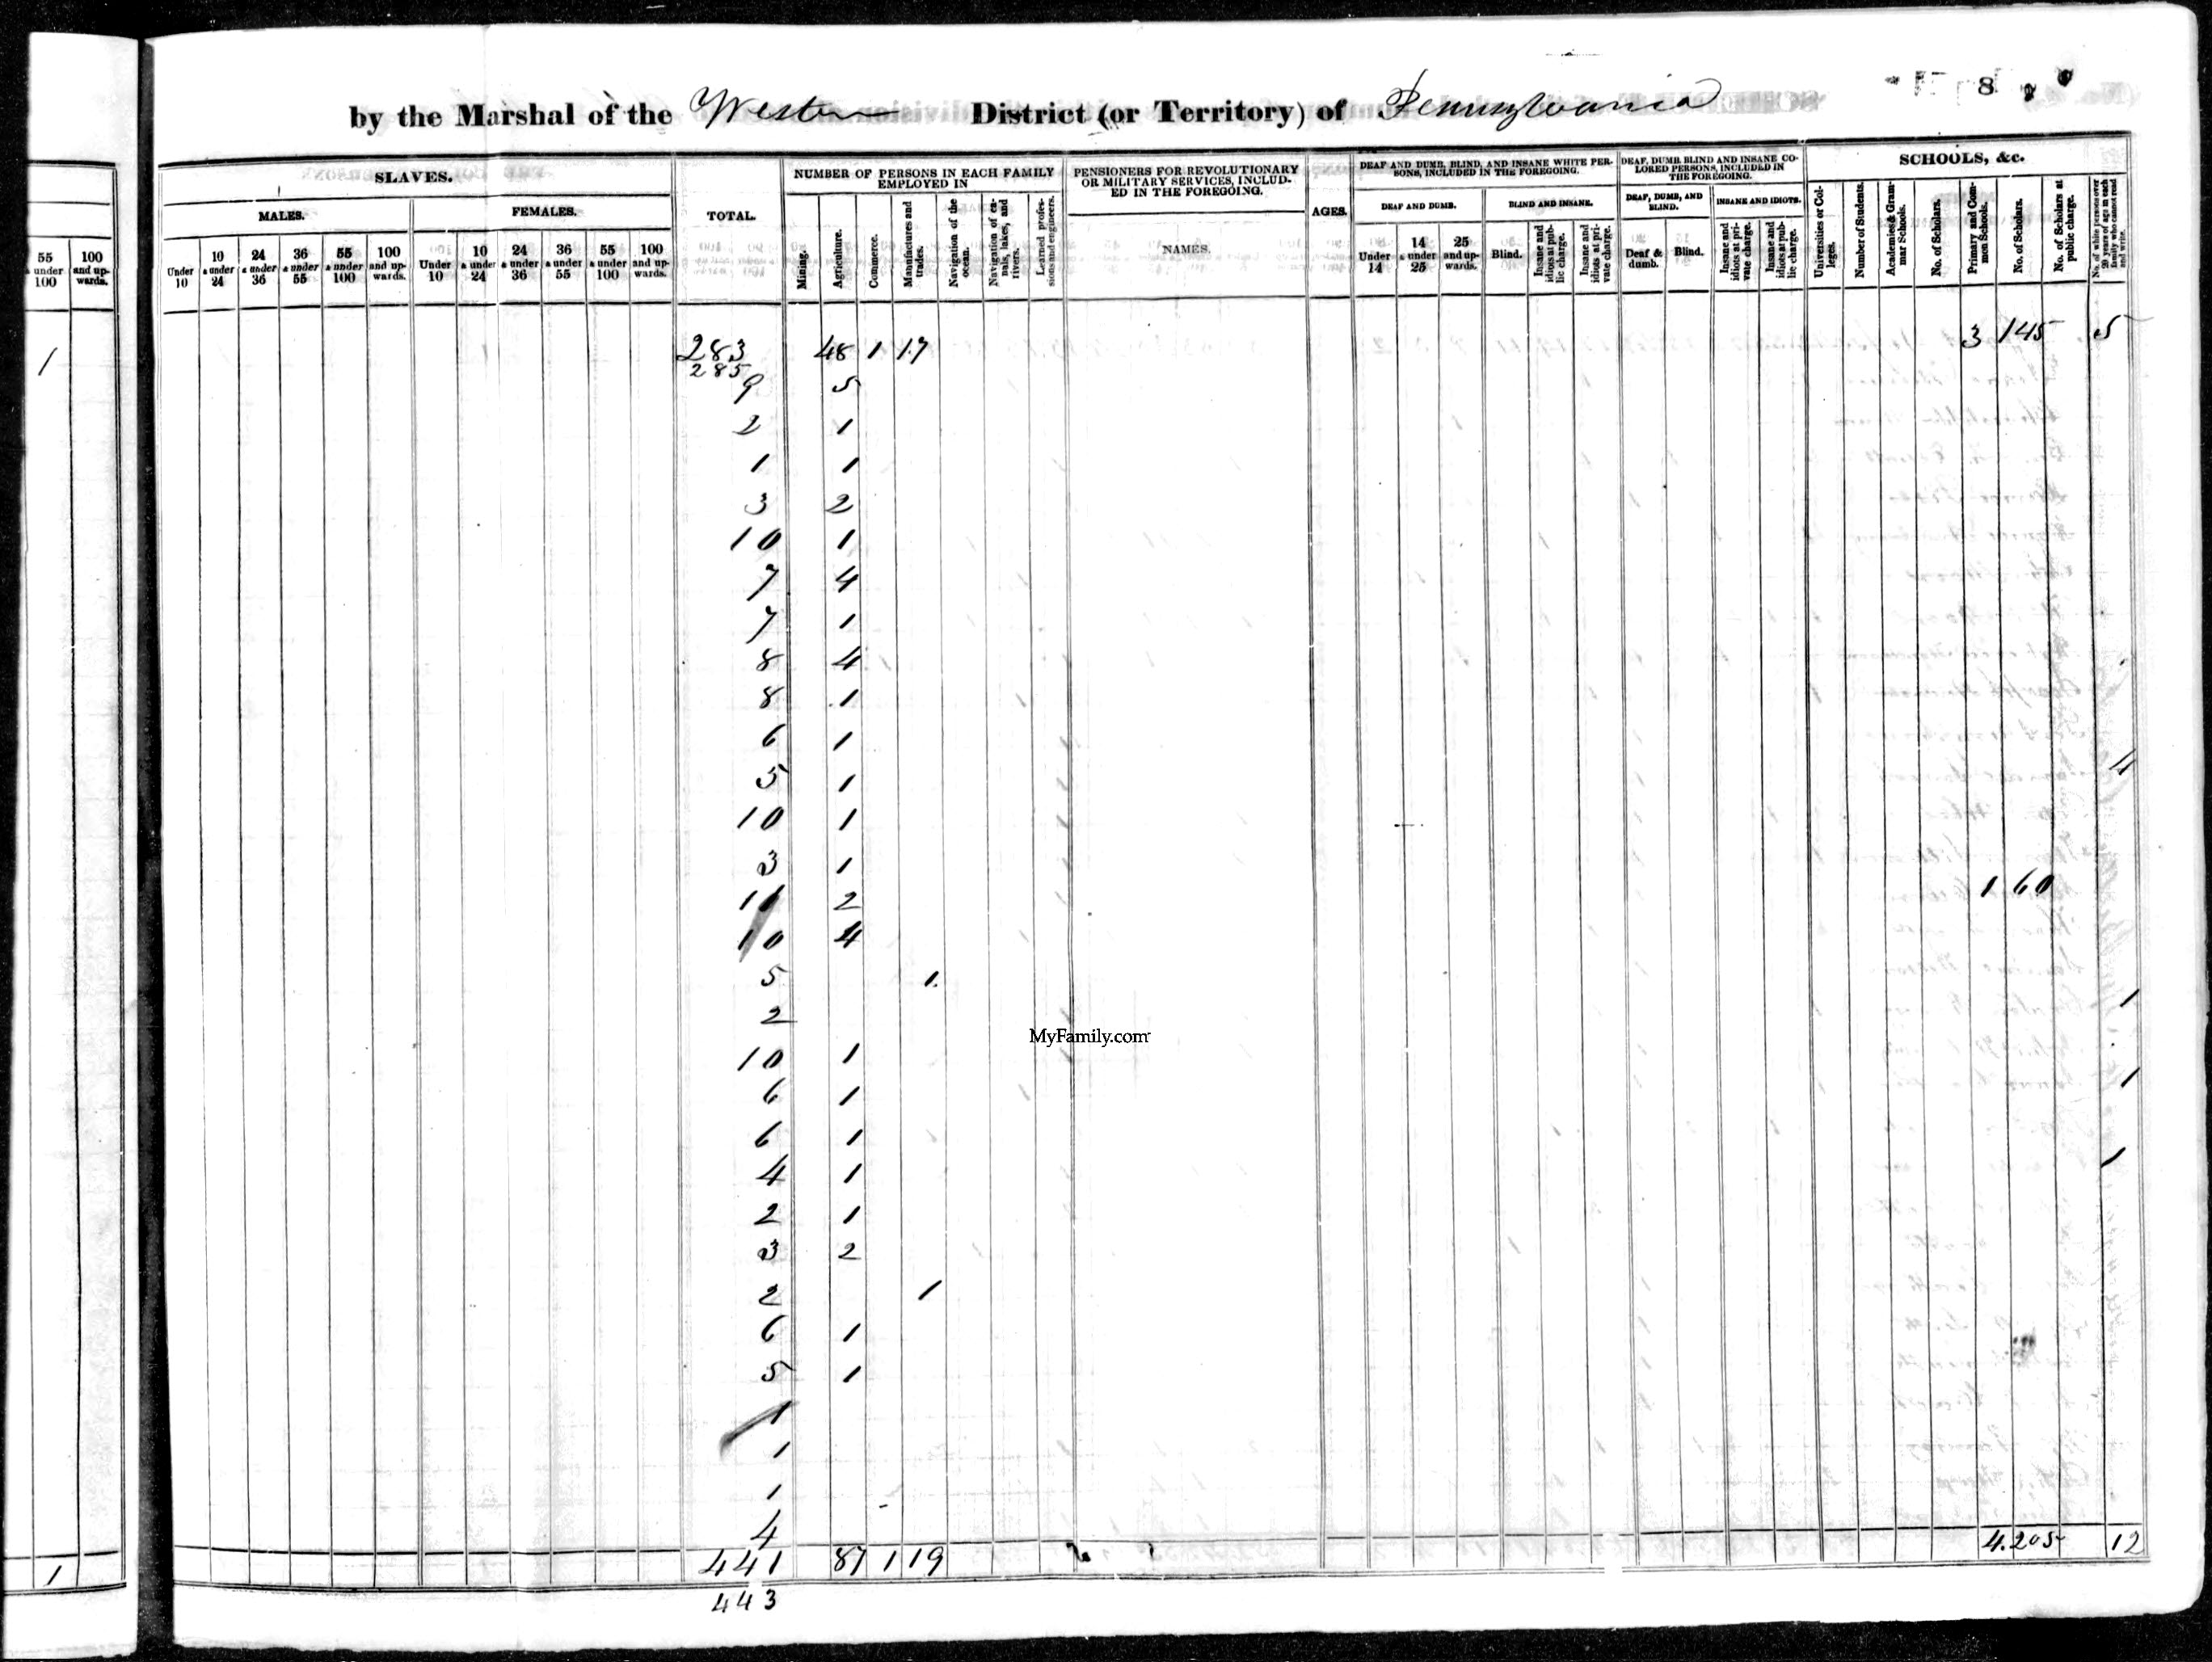 by the Marshal of the Western District (or Territory) of Pennsylvania 8
SLAVES. TOTAL. NUMBER OF PERSONS IN EACH FAMILY EMPLOYED IN PENSIONERS FOR REVOLUTIONARY OR MILITARY SERVICES, INCLUDED IN THE FOREGOING. AGES. DEAF AND DUMB, BLIND, AND INSANE WHITE PERSONS, INCLUDED IN THE FOREGOING. DEAF, DUMB, BLIND AND INSANE COLORED PERSONS, INCLUDED IN THE FOREGOING. SCHOOLS, &c.
MALES. FEMALES. NAMES. DEAF AND DUMB. BLIND AND INSANE. DEAF, DUMB, AND BLIND. INSANE AND IDIOTS.
55 & under 100 100 and upwards.
Under 10 10 & under 24 24 & under 36 36 & under 55 55 & under 100 100 and upwards. Under 10 10 & under 24 24 & under 36 36 & under 55 55 & under 100 100 and upwards.
Mining. Agriculture. Commerce. Manufactures and trades. Navigation of the ocean. Navigation of canals, lakes, and rivers. Learned professions and engineers.
Under 14 14 & under 25 25 and upwards. Blind. Insane and idiots at public charge. Insane and idiots at private charge. Deaf & dumb. Blind. Insane and idiots at private charge. Insane and idiots at public charge.
Universities or Colleges. Number of Students. Academies & Grammar Schools. No. of Scholars. Primary and Common Schools. No. of Scholars. No. of Scholars at public charge. No. of white persons over 20 years of age in each family who cannot read and write.
1 283 48 1 17 3 145 5
285
9 5
2 1
1 1
3 2
10 1
7 4
7 1
8 4
8 1
6 1
5 1 4
10 1
3 1
11 2 1 60
10 4
5 1
2 1
10 1
6 1 1
6 1
4 1 1
2 1
3 2
2 1
6 1
5 1
1
1
1
4
1 441 87 1 19 4 205 12
443
MyFamily.com